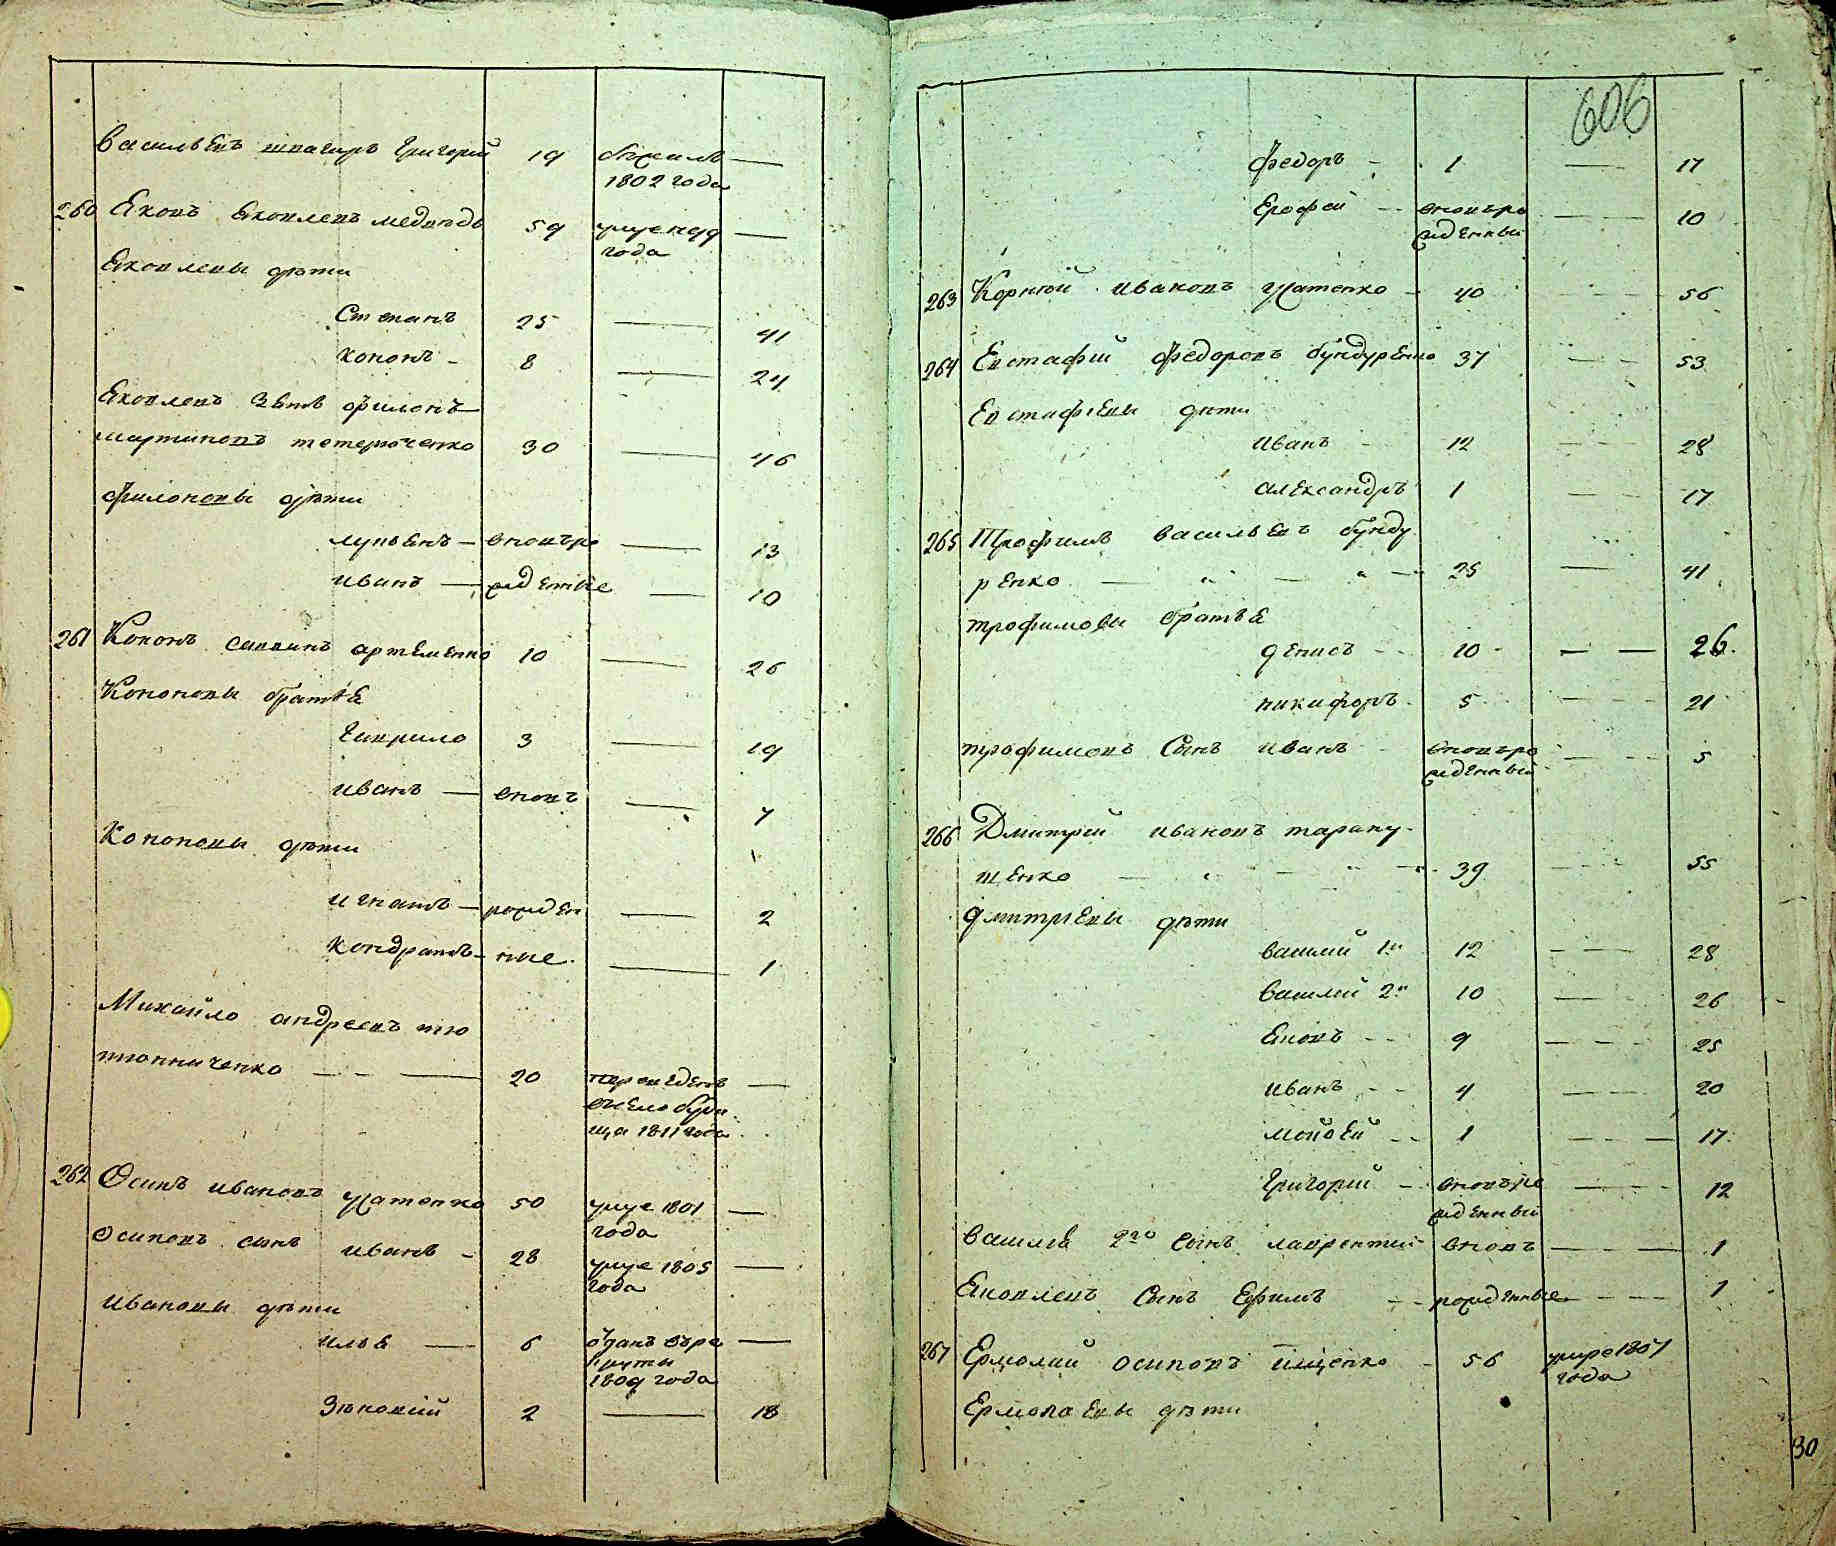 Васильевъ швагиръ Григорий 19 бѣжалъ —
1802 года
260 Яковъ Яковлевъ медвѣдь 59 умре 1799 —
года
Яковлевы дѣти
Степанъ 25 — 41
кононъ 8 — 24
Яковлевъ Зять филонъ
мартиновъ тетерюченко 30 — 46
филоновы дѣти
лупьенъ — вновьро — 13
иванъ — жденные — 10
261 Кононъ саввинъ артеменко 10 — 26
Кононовы братья
Гаврило 3 — 19
иванъ — вновь — 7
Кононовы дѣти
игнатъ — рожден — 2
кондратъ — ные — 1
Михайло андреевъ тю
тюнниченко — — — 20 переведенъ —
въ село буди
ща 1811 года
262 Осипъ ивановъ 50 умре 1801 —
года
Осиповъ сынъ иванъ - 28 умре 1805 —
года
ивановы дѣти
илья — 6 отданъ въре —
круты
1809 года
Зѣновий 2 — 18
606
федоръ - 1 — 17
Ерофей - вновьро — 10
жденный
263 Корний ивановъ - 40 — 56
264 Евстафий федоровъ бундуренко 37 — 53
Евстафиевы дѣти
иванъ - 12 — 28
александръ 1 — 17
265 Трофимъ васильевъ бунду
ренко — — 25 — 41
трофимовы братья
денисъ - 10 — 26
никифоръ 5 — 21
трофимовъ сынъ иванъ - вновьро — 5
жденный
266 Дмитрей ивановъ тарану
щенко — — 39 — 55
дмитриевы дѣти
василий 1й 12 — 28
василий 2й 10 — 26
Яковъ - 9 — 25
иванъ - 4 — 20
мойсей - 1 — 17
Григорий - вновьро — 12
жденный
василия 2го сынъ лаврентий вновь — 1
Яковлевъ Сынъ Ефимъ - рожденные — 1
267 Ермолай осиповъ ищенко - 56 умре 1807
года
Ермолаевы дѣти
30